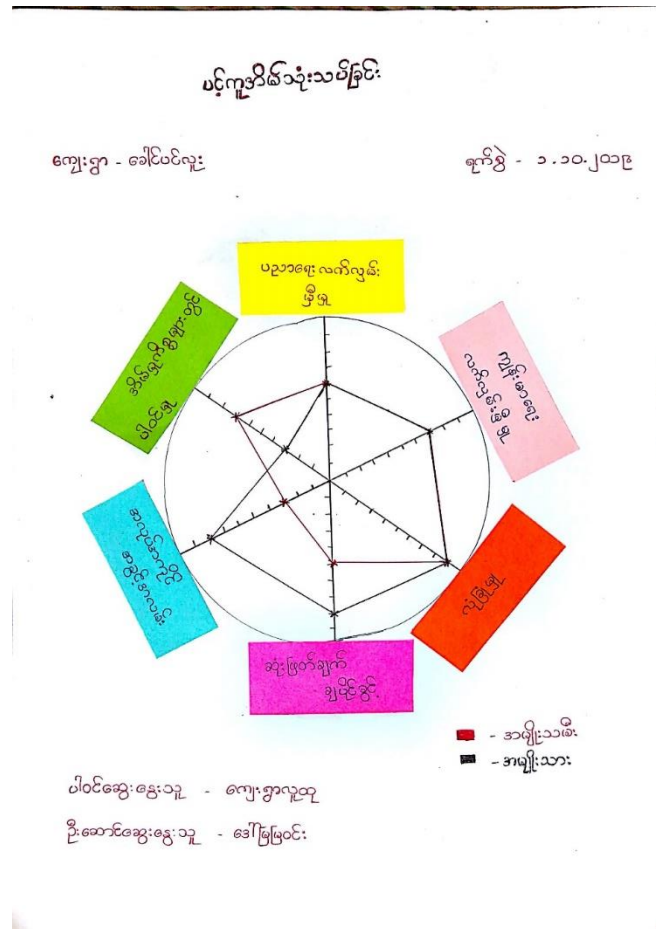 ပင့်ကူအိမ်သုံးသပ်ခြင်း
ကျေးရွာ - ခေါင်ပင်လူး
ရက်စွဲ - ၁.၁၀.၂၀၁၉
ပညာရေး လက်လှမ်း
မှီမှု
ကျန်းမာရေး
လက်လှမ်းမှီမှု
လုံခြုံမှု
ဆုံးဖြတ်ချက်
ချပိုင်ခွင့်
အလုပ်အကိုင်
အခွင့်အလမ်း
အိမ်မှုကိစ္စများတွင်
ပါဝင်မှု
- အမျိုးသမီး
- အမျိုးသား
ပါဝင်ဆွေးနွေးသူ - ကျေးရွာလူထု
ဦးဆောင်ဆွေးနွေးသူ - ဒေါ်မြမြဝင်း